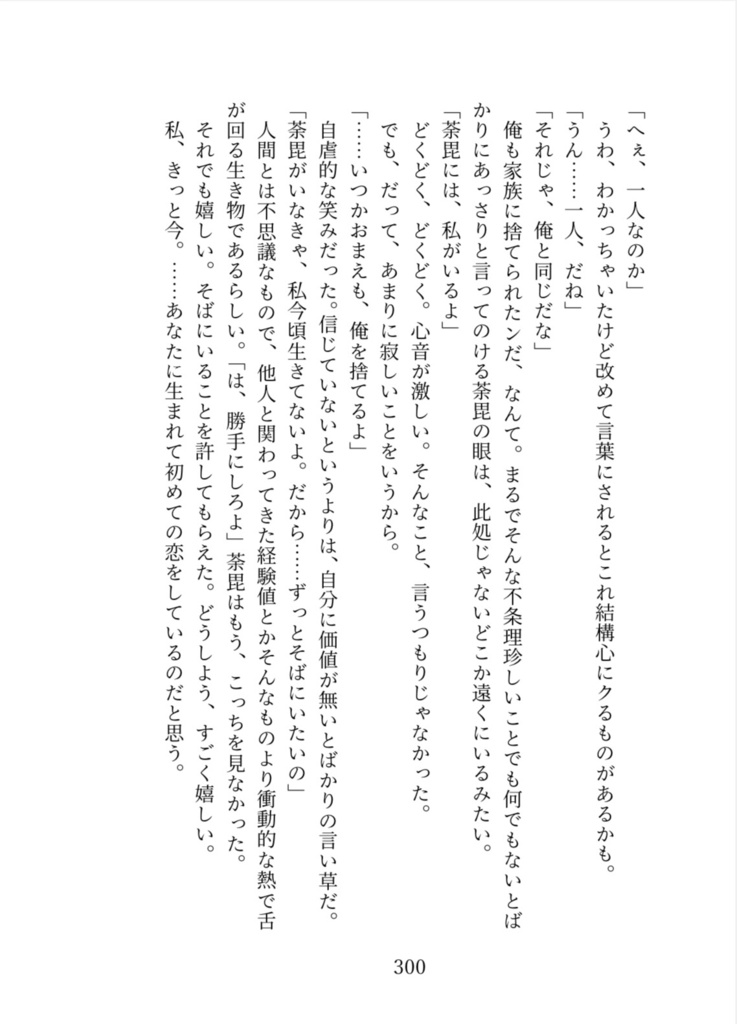 「へぇ、一人なのか」
うわ、わかっちゃいたけど改めて言葉にされるとこれ結構心にクるものがあるかも。
「うん……一人、だね」
「それじゃ、俺と同じだな」
俺も家族に捨てられたンだ、なんて。まるでそんな不条理珍しいことでも何でもないとば
かりにあっさりと言ってのける荼毘の眼は、此処じゃないどこか遠くにいるみたい。
「荼毘には、私がいるよ」
どくどく、どくどく。心音が激しい。そんなこと、言うつもりじゃなかった。
でも、だって、あまりに寂しいことをいうから。
「……いつかおまえも、俺を捨てるよ」
自虐的な笑みだった。信じていないというよりは、自分に価値が無いとばかりの言い草だ。
「荼毘がいなきゃ、私今頃生きてないよ。だから……ずっとそばにいたいの」
人間とは不思議なもので、他人と関わってきた経験値とかそんなものより衝動的な熱で舌
が回る生き物であるらしい。「は、勝手にしろよ」荼毘はもう、こっちを見なかった。
それでも嬉しい。そばにいることを許してもらえた。どうしよう、すごく嬉しい。
私、きっと今。……あなたに生まれて初めての恋をしているのだと思う。
300